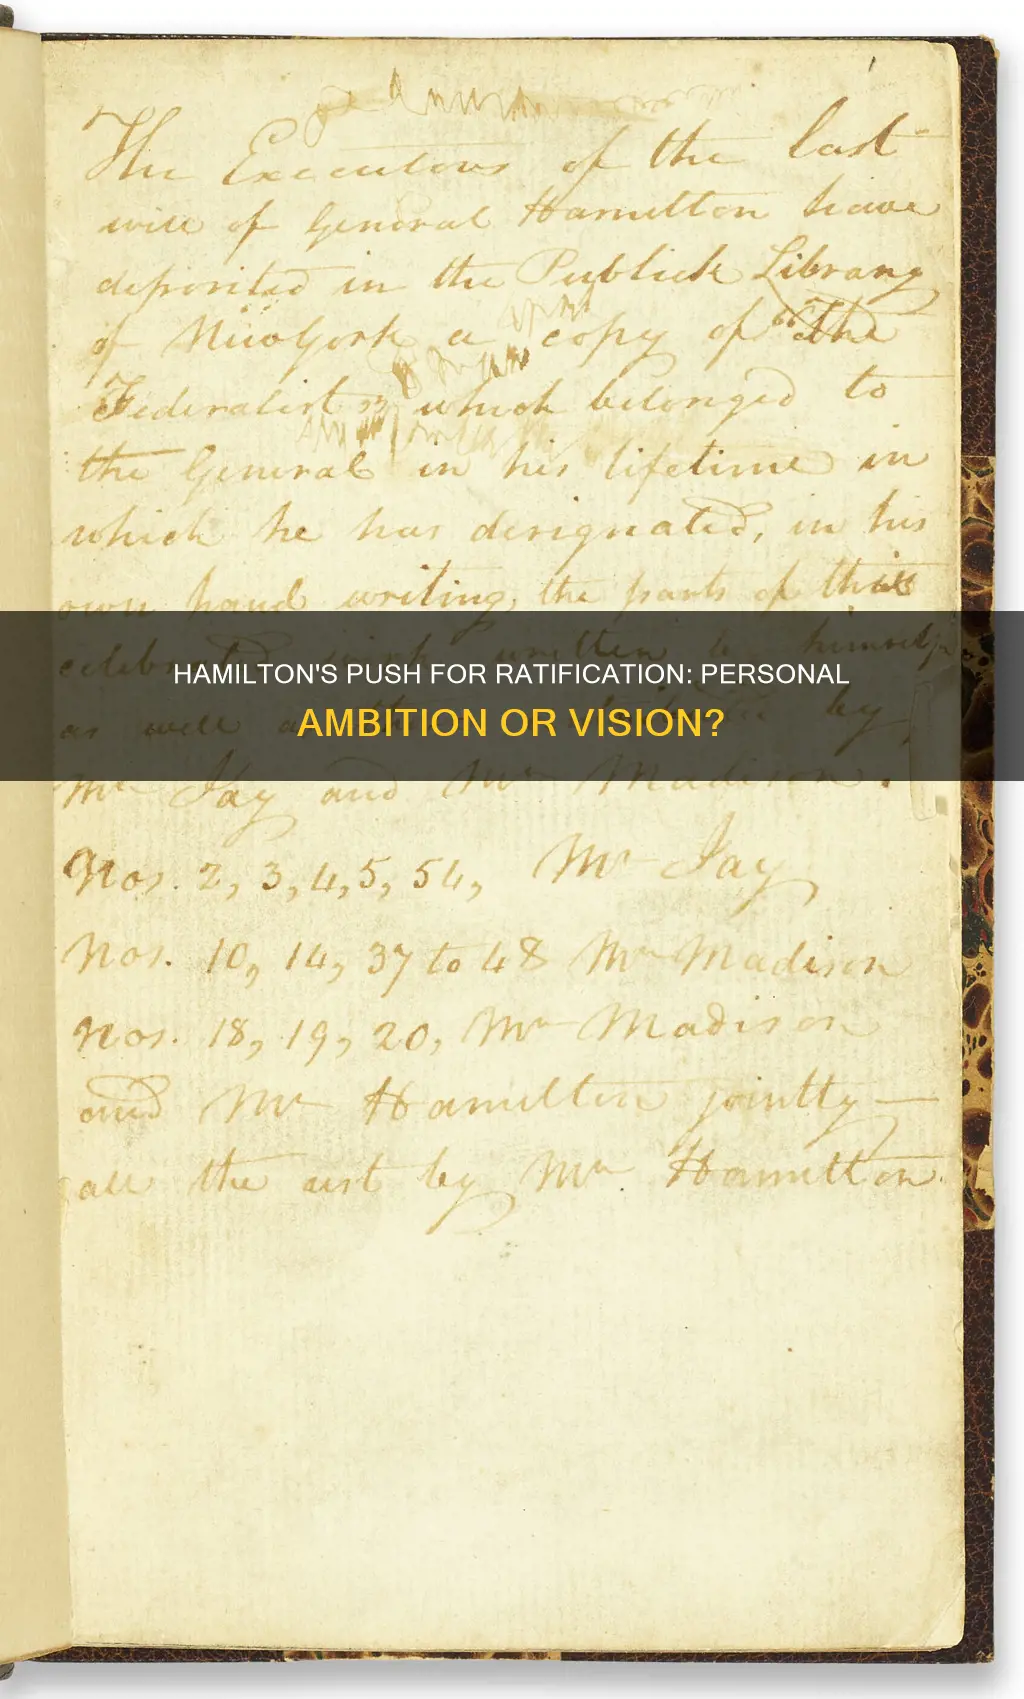 The Executors of the last
will of General Hamilton have
deposited in the Publick Library
of New York a copy of "The
Federalist," which belonged to
the General in his lifetime in
which he has designated, in his
own hand writing, the parts of that
HAMILTON'S PUSH FOR RATIFICATION: PERSONAL
AMBITION OR VISION?
celebrated work written by himself,
as well as by
Mr Jay and Mr Madison.
Nos. 2, 3, 4, 5, 54, Mr Jay
Nos. 10, 14, 37 to 48 Mr Madison
Nos. 18, 19, 20, Mr Madison
and Mr Hamilton jointly—
all the rest by Mr Hamilton.